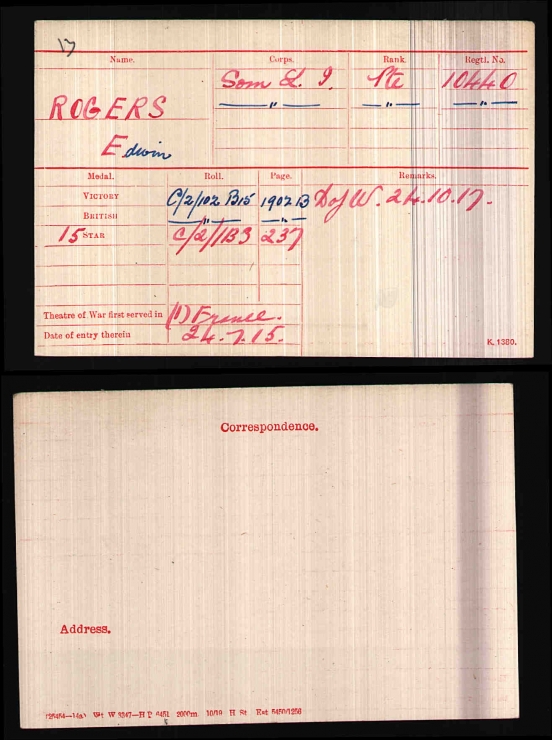 17
Name. Corps. Rank. Regtl. No.
ROGERS Som L. I. Pte 10440
Edwin — " — — " — — " —
Medal. Roll. Page. Remarks.
VICTORY C/2/102 B15 1902 B D of W. 24.10.17.
BRITISH — " — — " —
15 STAR C/2/1B3 237
Theatre of War first served in (1) France.
Date of entry therein 24.7.15.
K. 1380.
Correspondence.
Address.
W 3347—H P 6451 2000m. 10/19 H St Est 5450/1256